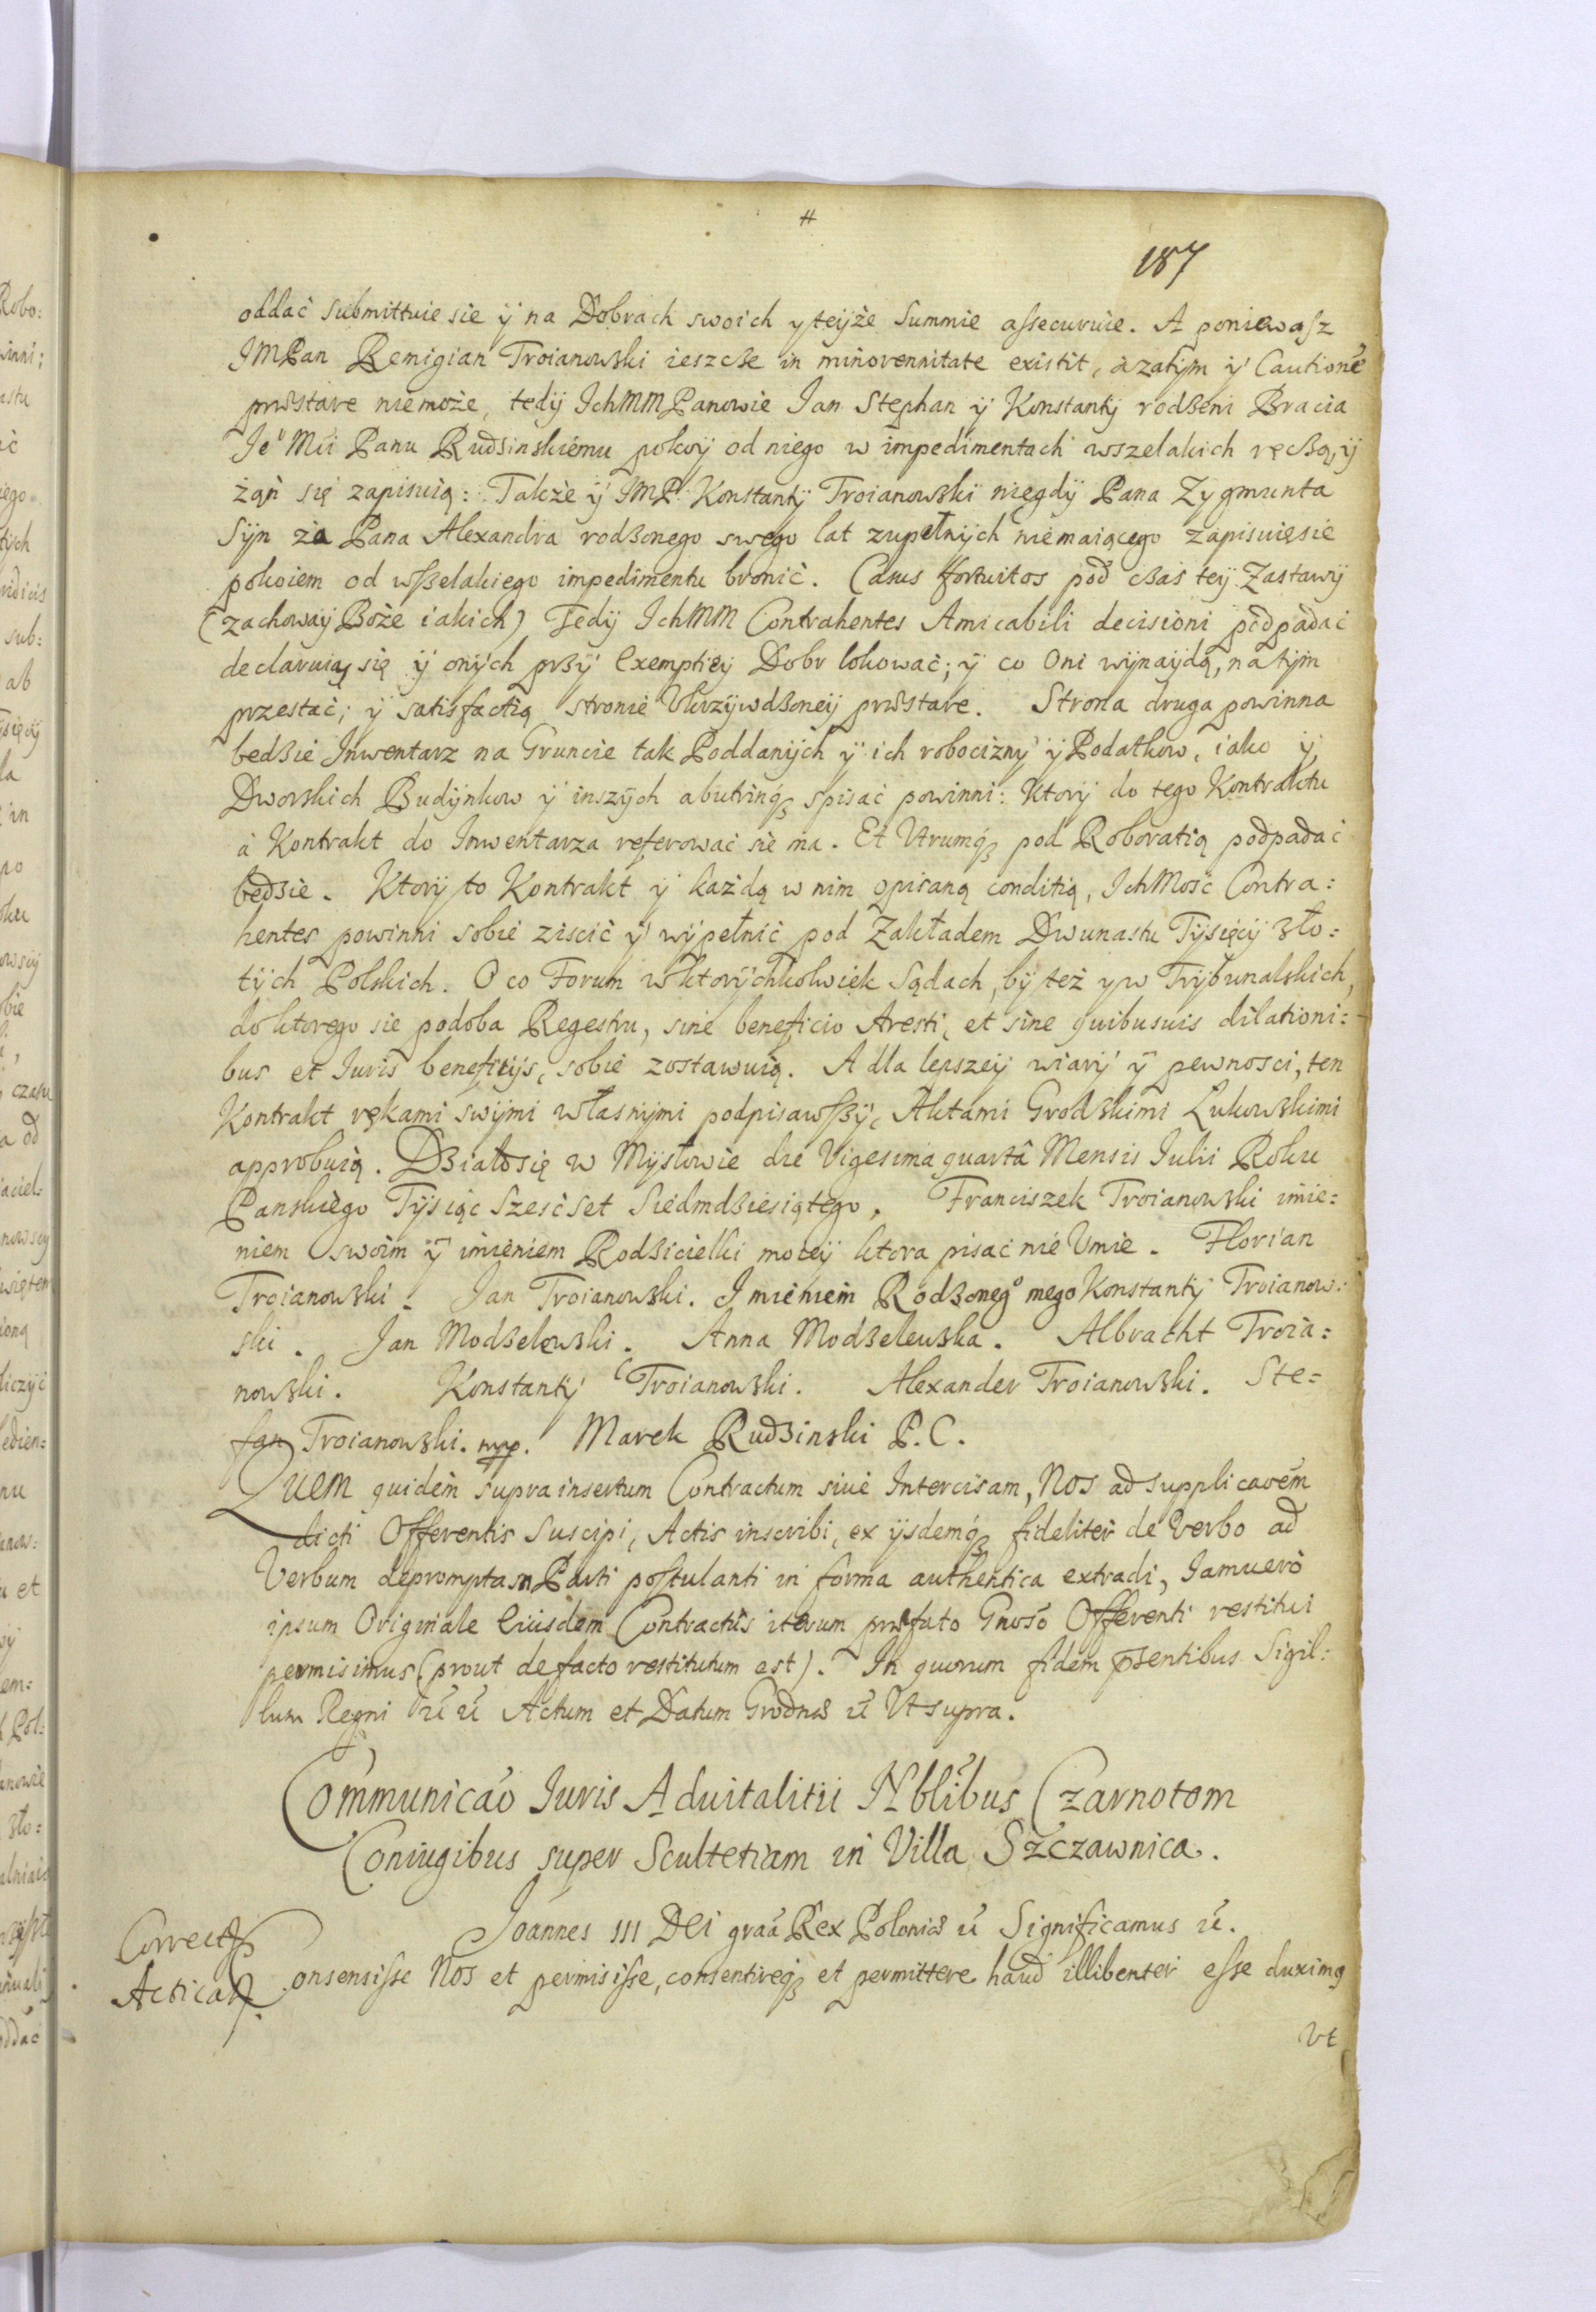 187
oddać submittuie sie ÿ na Dobrach swoich y teÿże Summie assecuruie. A poniewasz
JMPan Remigian Troianowski ieszcze in minorennitate existit, a zatÿm ÿ Cautionē
præstare niemoże, tedÿ IchMM Panowie Jan Stephan ÿ Konstantÿ rodzeni Bracia
Je° Mći Panu Rudzinskiemu pokoÿ od niego w impedimentach wszelakich ręczą, ÿ
żąń się zapisuią: Także ÿ JMP. Konstantÿ Troianowski niegdÿ Pana Zygmunta
Sÿn za Pana Alexandra rodzonego swego lat zupełnÿch niemaiącego zapisuięsie
pokoiem od wszelakiego impedimentu bronić. Casus fortuitos pod czas teÿ Zastawÿ
(zachowaÿ Boże iakich) Tedÿ IchMM Contrahentes Amicabili decisioni podpadać
declaruią się ÿ onÿch przÿ Exemptieÿ Dobr lokować; ÿ co Oni wÿnaÿdą, na tÿm
przestać; ÿ satisfactią stronie Ukrzÿwdzoneÿ præstare. Strona druga powinna
bedzie Inwentarz na Gruncie tak Poddanÿch ÿ ich robocizny ÿ Podatkow, iako ÿ
Dworskich Budÿnkow ÿ inszÿch abutrinq₃ spisać powinni: Ktorÿ do tego Kontraktu
à Kontrakt do Inwentarza referować sie ma. Et Utrumq₃ pod Roboratią podpadać
bedzie. Ktorÿ to Kontrakt ÿ każdą w nim opisaną conditią, IchMość Contra:
hentes powinni sobie ziscić ÿ wÿpełnić pod Zakładem Dwunastu Tÿsięcÿ zło:
tÿch Polskich. O co Forum w ktorÿchkolwiek Sądach, bÿ też y w Trÿbunalskich,
do ktorego sie podoba Regestru, sine beneficio Aresti, et sine quibusuis dilationi:
bus et Iuris beneficijs, sobie zostawuią. A dla lepszeÿ wiarÿ ÿ pewnosci, ten
Kontrakt rękami swÿmi własnÿmi podpisawszÿ, Aktami Grodzkimi Lukowskimi
approbuią. Działosię w Mÿsłowie die Vigesima quartâ Mensis Iulii Roku
Panskiego Tÿsiąc Szesćset Siedmdziesiątego. Franciszek Troianowski imie:
niem swoim ÿ imieniem Rodzicielki moieÿ ktora pisać nie Umie. Florian
Troianowski. Jan Troianowski. Imieniem Rodzoneg° mego Konstantÿ Troianow:
ski. Jan Modzelewski. Anna Modzelewska. Albracht Troia:
nowski. Konstantÿ Troianowski. Alexander Troianowski. Ste=
fan Troianowski. mp. Marek Rudzinski P.C.
Quem quidem supra insertum Contractum siue Intercisam, Nos ad supplicaōēm
dicti Offerentis Suscipi, Actis inscribi, ex ijsdemq₃ fideliter de Verbo ad
Verbum depromptam Parti postulanti in forma authentica extradi, Iamuerò
ipsum Originale Eiusdem Contractûs iterum præfato Gnōso Offerenti restitui
permisimus (prout de facto restitutum est). In quorum fidem pn̄sentibus Sigil:
lum Regni &̃ &̃ Actum et Datum Grodnæ &̃ Ut supra.
Communicāo Iuris Aduitalitii Nblibus Czarnotom
Coniugibus super Scultetiam in Villa Szczawnica.
Correct₃
Acticat₃
Joannes III Dei graā Rex Poloniæ &̃ Significamus &̃.
onsensisse Nos et permisisse, consentireq₃ et permittere haud illibenter esse duximq
Vt